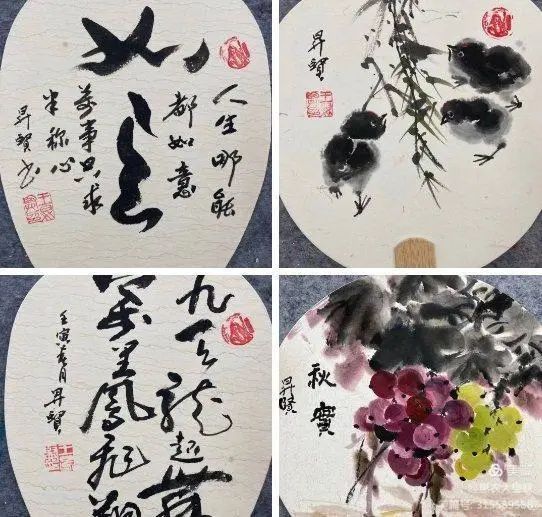 如意
人生哪能
都如意
萬事只求
半称心
昇賢书
昇賢
九天龍起舞
萬里鳳飛翔
壬寅春月昇賢
秋實
昇賢
美篇